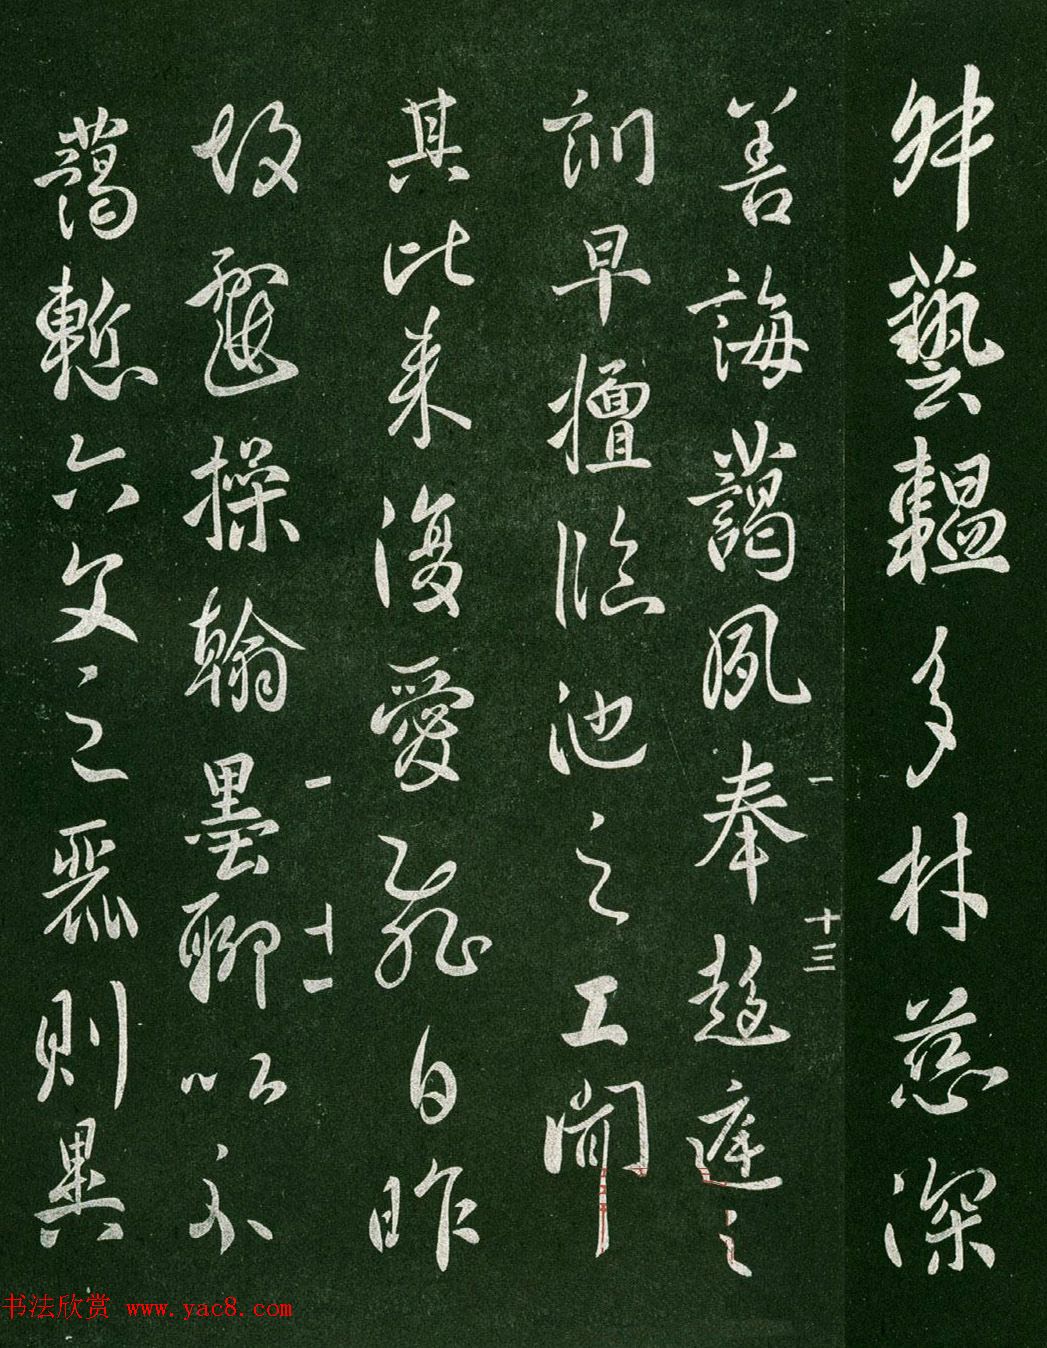 藝韞多材慈深
善誨藹夙奉趍庭之
一 十三
訓早擅臨池之工聞
其比来復愛飛白昨
一 十一
故遷操翰墨聊以示
藹慙六文之則異
书法欣赏 www.yac8.com